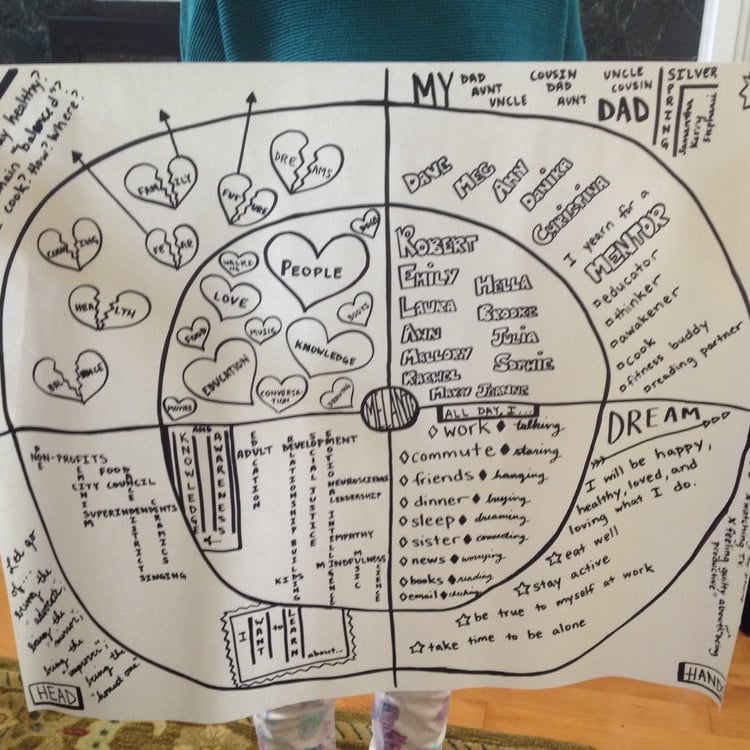 healthy?
balanced"?
cook? How? Where?
FAMILY
FUTURE
DREAMS
FEAR
HEALTH
BALANCE
PEOPLE
LOVE
MUSIC
FOOD
KNOWLEDGE
EDUCATION
CONVERSATION
MOVIES
MY
DAD
AUNT
UNCLE
COUSIN
DAD
AUNT
UNCLE
COUSIN
DAD
SILVER
SPRING
Samantha
Kerry
Stephanie
DAVE
MEG
AMY
DANIKA
CHRISTINA
I yearn for a
MENTOR
educator
thinker
awakener
cook
fitness buddy
reading partner
ROBERT
EMILY
LAURA
ANN
MALLORY
RACHEL
HELLA
BROOKE
JULIA
SOPHIE
MARY JOANNE
MELANIE
ALL DAY, I...
work talking
commute staring
friends hanging
dinner buying
sleep dreaming
sister connecting
news worrying
books reading
email checking
DREAM
I will be happy,
healthy, loved, and
loving what I do.
eat well
stay active
be true to myself at work
take time to be alone
feeling guilty about being
"productive"
HAND
KNOWLEDGE
AND
AWARENESS
ADULT DEVELOPMENT
EDUCATION
RELATIONSHIP BUILDING
SOCIAL JUSTICE
EMOTIONAL INTELLIGENCE
NEUROSCIENCE
LEADERSHIP
EMPATHY
MINDFULNESS
MUSIC
SCIENCE
KIDS
NON-PROFITS
FOOD
CITY COUNCIL
SUPERINTENDENTS
DISTRICTS
CERAMICS
SINGING
I
WANT
to
LEARN
about...
Let go
of...
being the
being the
being the
"improver"
being the
"honest one"
HEAD